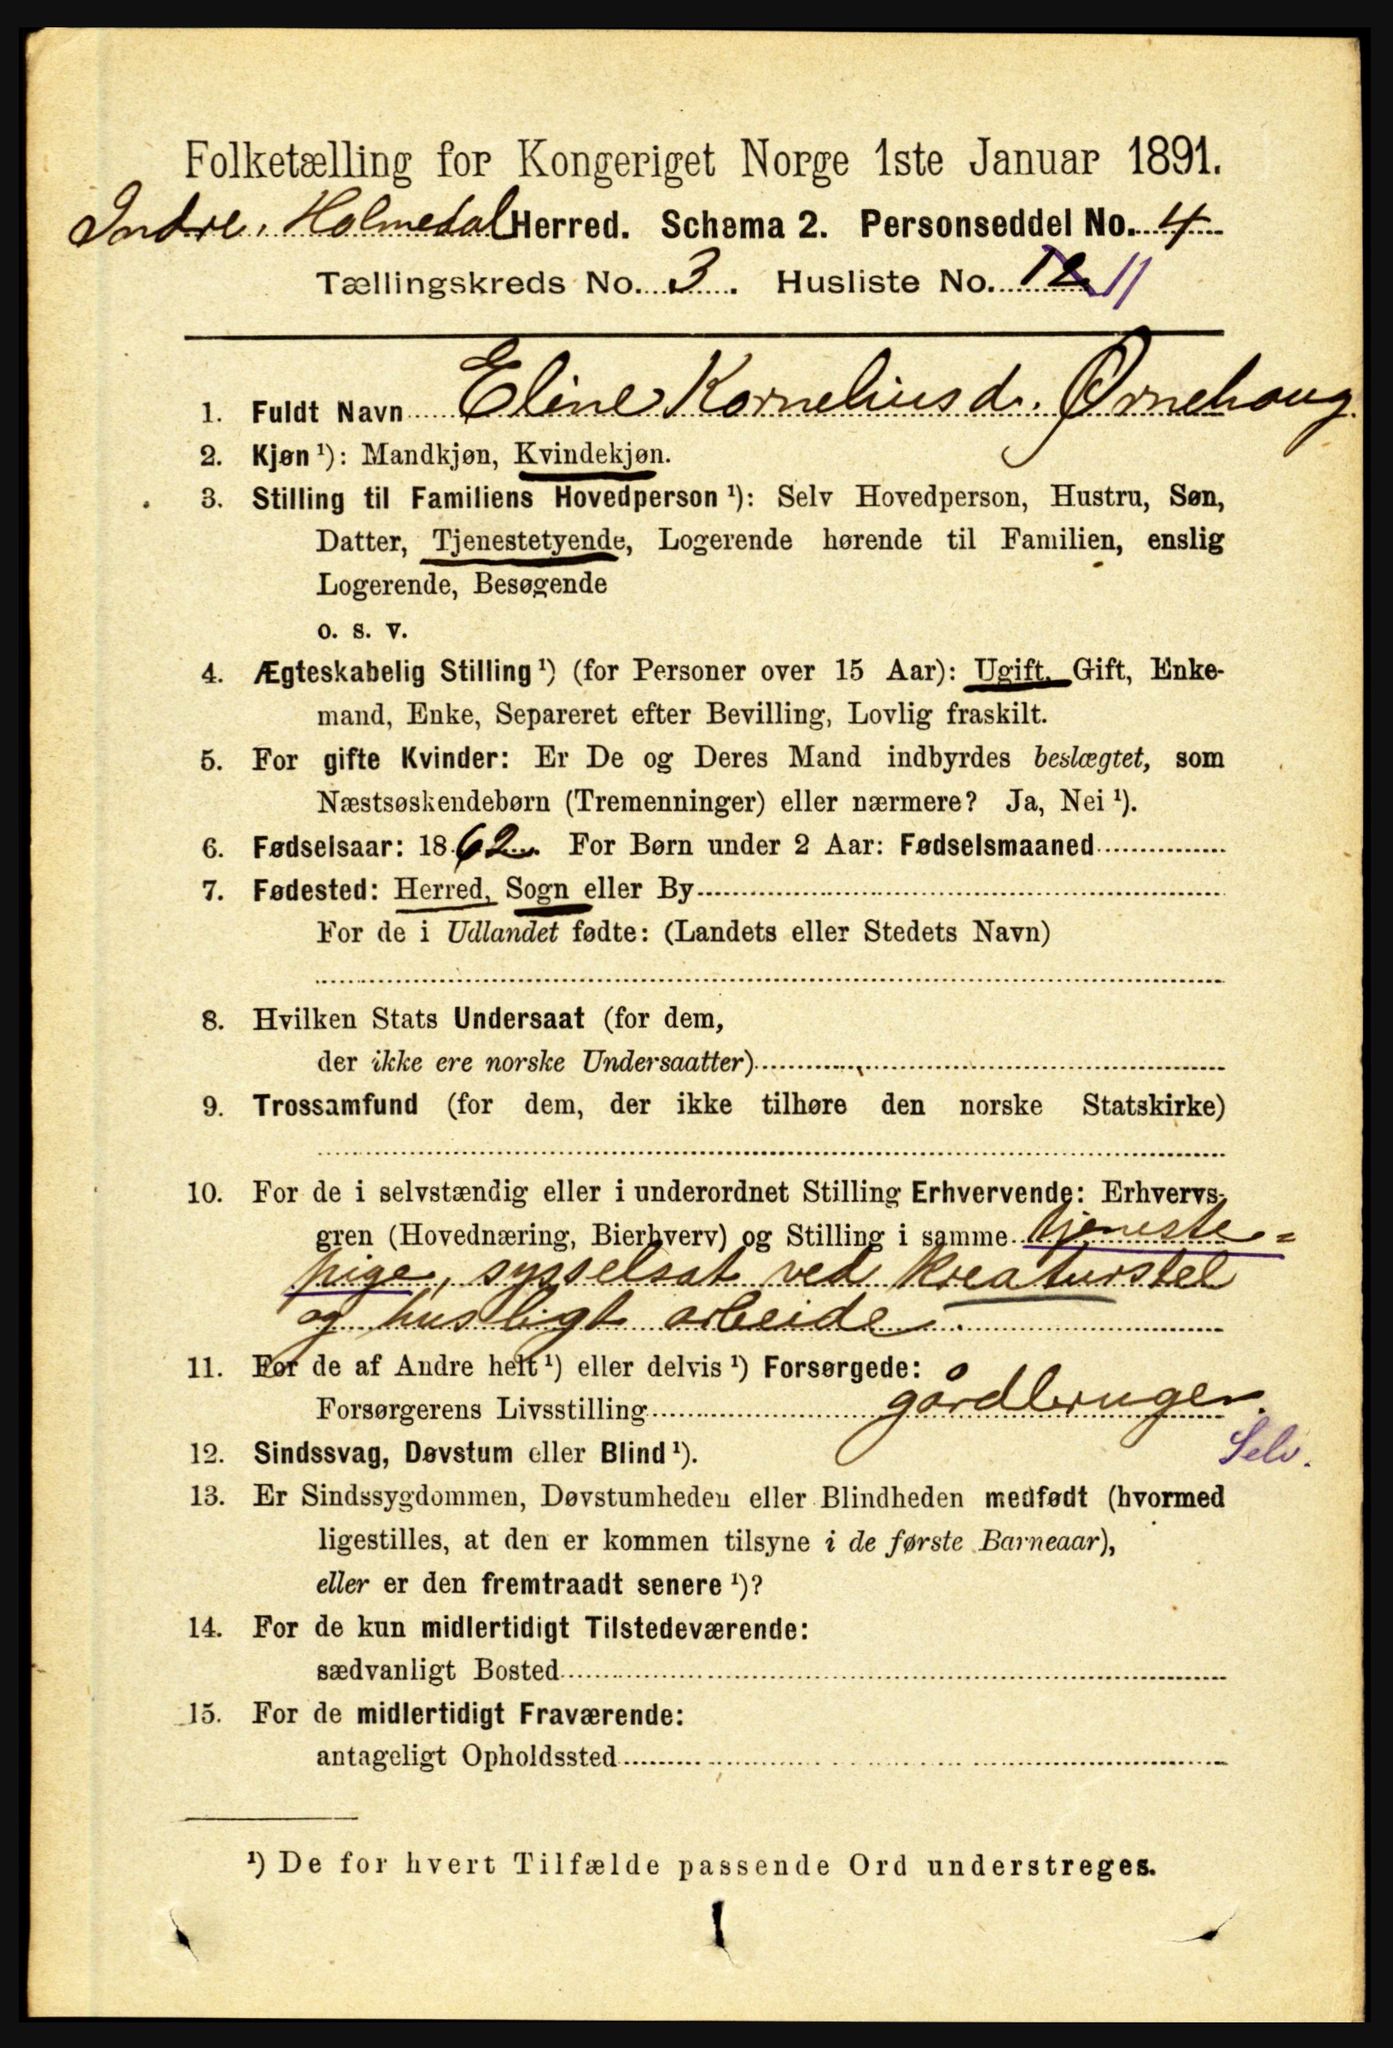 Folketælling for Kongeriget Norge 1ste Januar 1891.
Indre Holmedal Herred. Schema 2. Personseddel No. 4
Tællingskreds No. 3. Husliste No. 12 11
1. Fuldt Navn Eline Korneliusd. Ørnehaug.
2. Kjøn ¹): Mandkjøn, Kvindekjøn.
3. Stilling til Familiens Hovedperson ¹): Selv Hovedperson, Hustru, Søn,
Datter, Tjenestetyende, Logerende hørende til Familien, enslig
Logerende, Besøgende
o. s. v.
4. Ægteskabelig Stilling ¹) (for Personer over 15 Aar): Ugift, Gift, Enke-
mand, Enke, Separeret efter Bevilling, Lovlig fraskilt.
5. For gifte Kvinder: Er De og Deres Mand indbyrdes beslægtet, som
Næstsøskendebørn (Tremenninger) eller nærmere? Ja, Nei ¹).
6. Fødselsaar: 1862. For Børn under 2 Aar: Fødselsmaaned
7. Fødested: Herred, Sogn eller By
For de i Udlandet fødte: (Landets eller Stedets Navn)
8. Hvilken Stats Undersaat (for dem,
der ikke ere norske Undersaatter)
9. Trossamfund (for dem, der ikke tilhøre den norske Statskirke)
10. For de i selvstændig eller i underordnet Stilling Erhvervende: Erhvervs-
gren (Hovednæring, Bierhverv) og Stilling i samme tjeneste=
pige, sysselsat ved kreaturstel
og husligt arbeide.
11. For de af Andre helt ¹) eller delvis ¹) Forsørgede:
Forsørgerens Livsstilling gårdbruger.
Selv.
12. Sindssvag, Døvstum eller Blind ¹).
13. Er Sindssygdommen, Døvstumheden eller Blindheden medfødt (hvormed
ligestilles, at den er kommen tilsyne i de første Barneaar),
eller er den fremtraadt senere ¹)?
14. For de kun midlertidigt Tilstedeværende:
sædvanligt Bosted
15. For de midlertidigt Fraværende:
antageligt Opholdssted
¹) De for hvert Tilfælde passende Ord understreges.